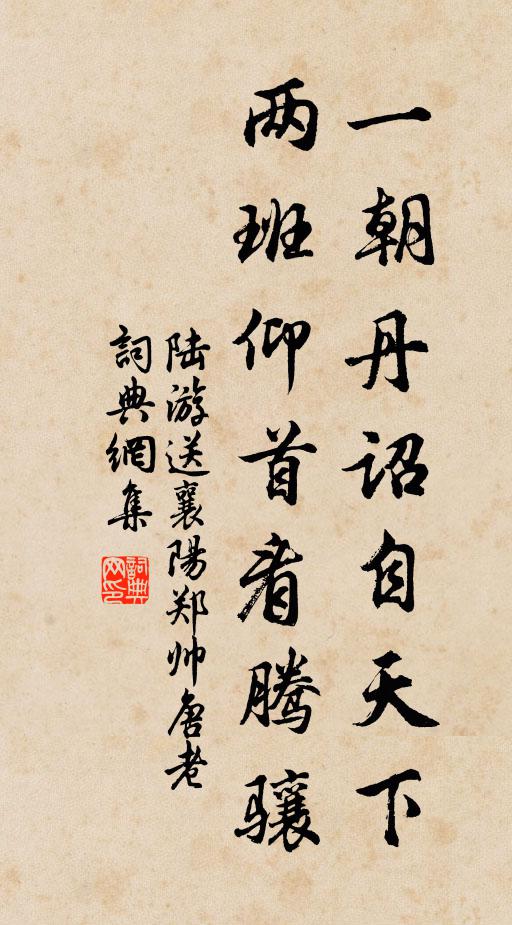 一朝丹诏自天下
两班仰首看腾骧
陆游送襄陽郑帅唐老
詞典網集
詞典网印